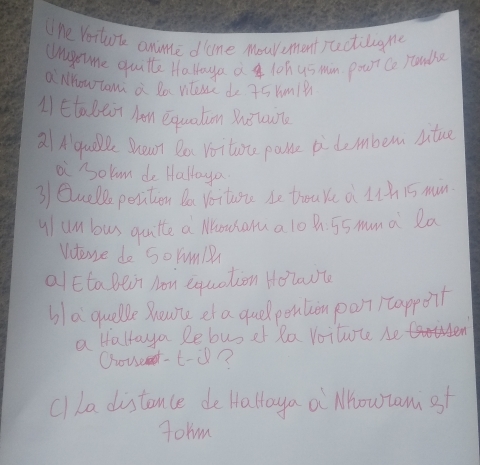 Une voiture animé d'une mouvement rectiligne
Uniforme quitte Hattaya à 10h 45 min. pour ce rendre
à Nkourani à la vitesse de 75 km/h
1) Etablir son équation horaire
2) A quelle heur la voiture passe à dembeni situe
à 30 km de Hattaya.
3) Quelle position la voiture se trouve à 11h 15 min.
4) un bus quitte à Nkourani a 10h:55 min à la
vitesse de 50 km/h
a) Etablir son équation Horaire
b) à quelle heure et a quel position par rapport
a Hattaya le bus et la voiture se
Croise-t-il ?
c) La distance de Hattaya à Nkourani est
70km